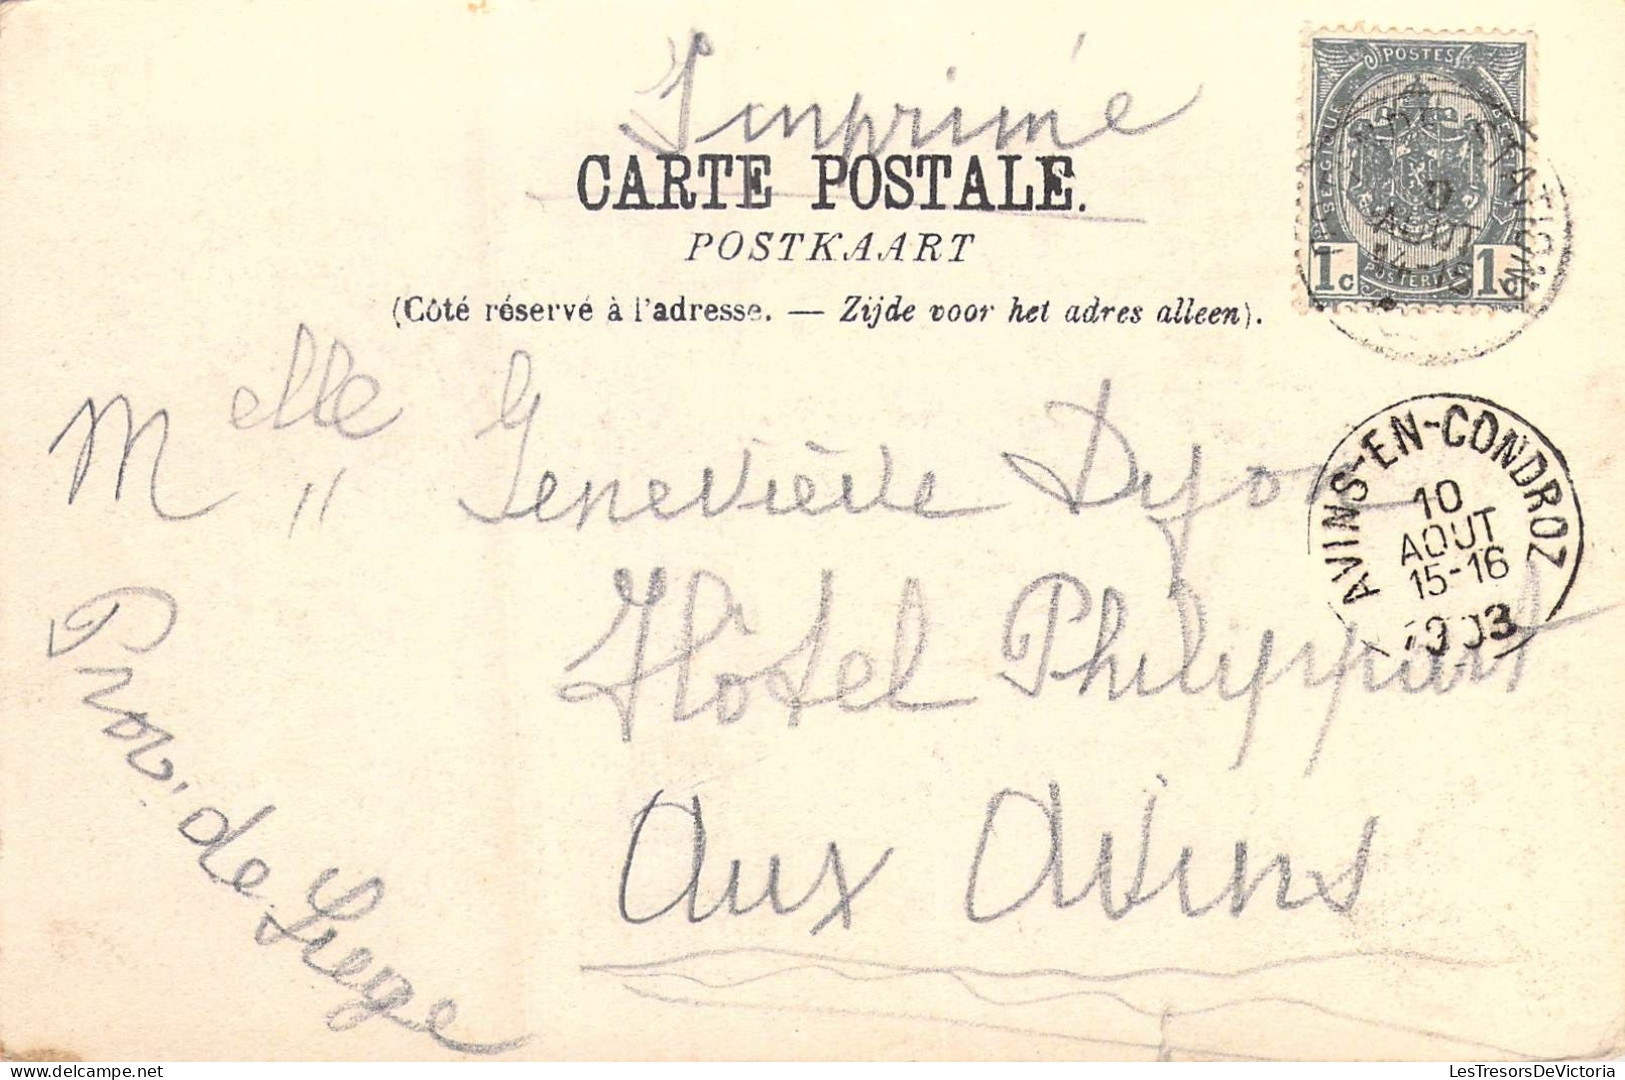 Imprimé
CARTE POSTALE.
POSTKAART
(Côté réservé à l'adresse. — Zijde voor het adres alleen).
POSTES
BELGIQUE
1c
POSTERIJEN
1c
AOUT
AVINS-EN-CONDROZ
10
AOUT
15-16
1903
Melle Geneviève
Hôtel Philippart
Aux Avins
Prov. de Liege
LesTresorsDeVictoria